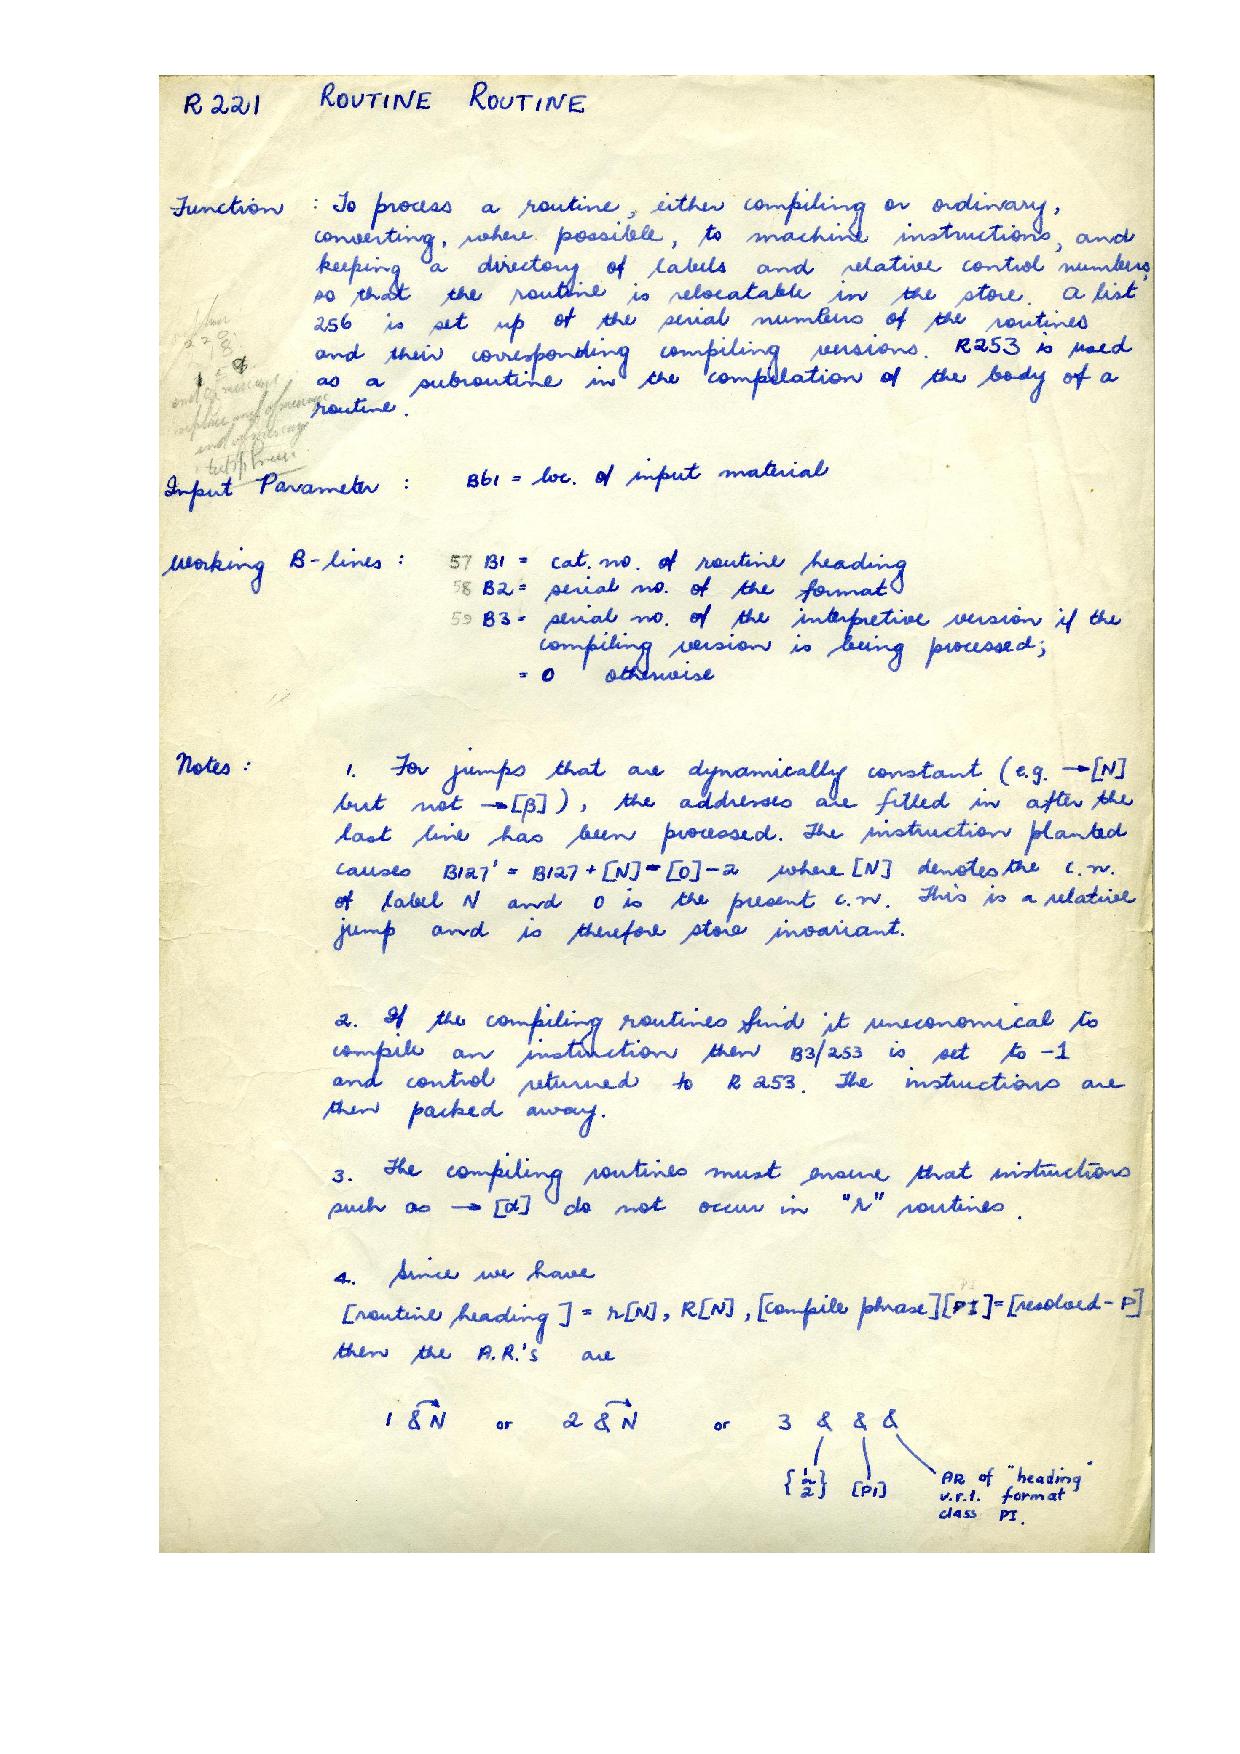 R221 ROUTINE ROUTINE
Function : To process a routine, either compiling or ordinary,
converting, where possible, to machine instructions, and
keeping a directory of labels and relative control numbers
so that the routine is relocatable in the store. A list
256 is set up of the serial numbers of the routines
and their corresponding compiling versions. R253 is used
as a subroutine in the compilation of the body of a
routine.
Input Parameter : B61 = loc. of input material
Working B-lines : 57 B1 = cat. no. of routine heading
58 B2 = serial no. of the format
59 B3 = serial no. of the interpretive version if the
compiling version is being processed;
= 0 otherwise
Notes : 1. For jumps that are dynamically constant (e.g. →[N]
but not →[β]), the addresses are filled in after the
last line has been processed. The instruction planted
causes B127' = B127 + [N] - [0] - 2 where [N] denotes the c.n.
of label N and 0 is the present c.n. This is a relative
jump and is therefore store invariant.
2. If the compiling routines find it uneconomical to
compile an instruction then B3/253 is set to -1
and control returned to R 253. The instructions are
then packed away.
3. The compiling routines must ensure that instructions
such as → [α] do not occur in "r" routines.
4. Since we have
[routine heading] = r[N], R[N], [compile phrase][PI]=[resolved-P]
then the A.R.'s are
1 &N or 2 &N or 3 & & &
{1/2} [PI] AR of "heading"
v.r.t. format
class PI.